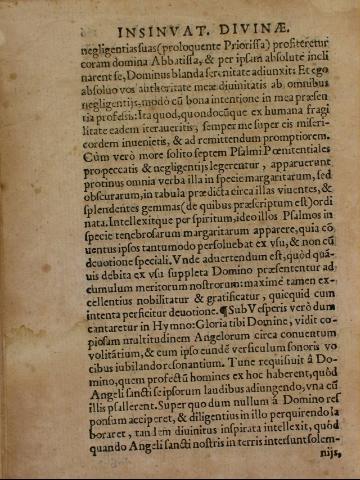 INSINVAT. DIVINÆ.
negligentias suas (proloquente Priorissa) profiteretur
coram domina Abbatissa, & per ipsam absolute incli
narent se, Dominus blanda serenitate adiunxit: Et ego
absoluo vos authoritate meæ diuinitatis ab omnibus
negligentijs, modò cũ bona intentione in mea præsen
tia professis: Ita quod, quandocũque ex humana fragi
litate eadem iteraueritis, semper me super eis miseri-
cordem inuenietis, & ad remittendum promptiorem.
Cùm verò more solito septem Psalmi Pœnitentiales
pro peccatis & negligentijs legerentur, apparuerunt
protinus omnia verba illa in specie margaritarum, sed
obscurarum, in tabula prædicta circa illas viuentes, &
splendentes gemmas (de quibus præscriptum est) ordi
nata. Intellexitque per spiritum, ideo illos Psalmos in
specie tenebrosarum margaritarum apparere, quia cõ
uentus ipsos tantumodo persoluebat ex vsu, & non cũ
deuotione speciali. Vnde aduertendum est, quòd qua-
uis debita ex vsu suppleta Domino præsententur ad
cumulum meritorum nostrorum: maximè tamen ex-
cellentius nobilitatur & gratificatur, quicquid cum
intenta perficitur deuotione. ¶ Sub Vesperis verò dum
cantaretur in Hymno: Gloria tibi Domine, vidit co-
piosam multitudinem Angelorum circa conuentum
volitãtium, & cum ipso eundẽ versiculum sonoris vo
cibus iubilando resonantium. Tunc requisiuit à Do-
mino, quem profectũ homines ex hoc haberent, quòd
Angeli sancti se ipsorum laudibus adiungendo, vna cũ
illis psallerent. Super quo dum nullum à Domino res
ponsum acciperet, & diligentius in illo perquirendo la
boraret, tandem diuinitus inspirata intellexit, quòd
quando Angeli sancti nostris in terris intersunt solem-
nijs,